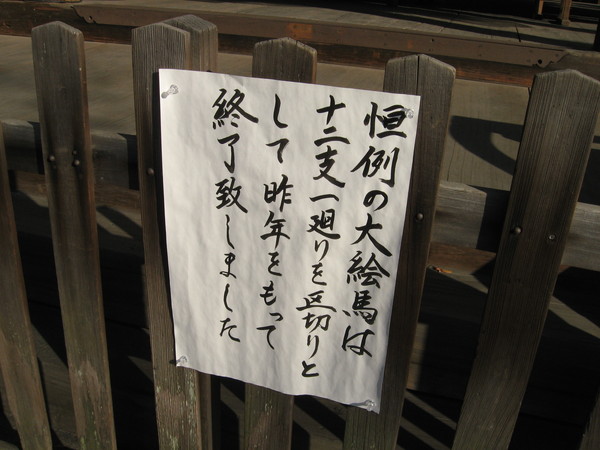 恒例の大絵馬は
十二支一廻りを区切りと
して昨年をもって
終了致しました